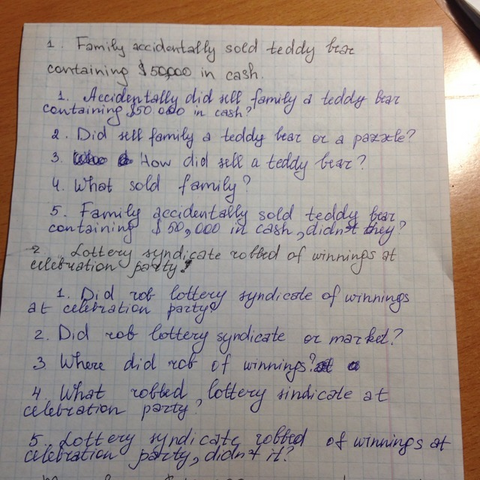 1. Family accidentally sold teddy bear
containing $50000 in cash.
1. Accidentally did sell family a teddy bear
containing $50 000 in cash?
2. Did sell family a teddy bear or a pazzle?
3. How did sell a teddy bear?
4. What sold family?
5. Family accidentally sold teddy bear
containing $50,000 in cash, didn't they?
2 Lottery syndicate robbed of winnings at
celebration party.
1. Did rob lottery syndicate of winnings
at celebration party?
2. Did rob lottery syndicate or market?
3. Where did rob of winnings?
4. What robbed lottery sindicate at
celebration party?
5. Lottery syndicate robbed of winnings at
celebration party, didn't it?